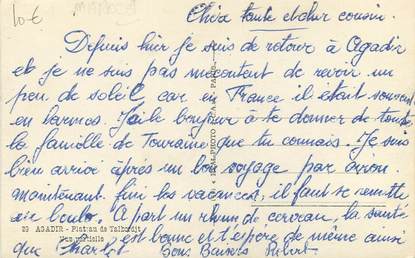 10 €
Chère tante et cher cousin.
Depuis hier je suis de retour à Agadir
et je ne suis pas mécontent de revoir un
peu de soleil, car en France il était souvent
en larmes. J'ai le bonjour à te donner de toute
la famille de Touraine que tu connais. Je suis
bien arrivé après un bon voyage par avion.
maintenant fini les vacances, il faut se remettre
au boulot. A part un rhume de cerveau, la santé
23 AGADIR - Plateau de Talbordjt
Vue partielle
est bonne et t'espère de même ainsi
que Charlot Bons Baisers Robert.